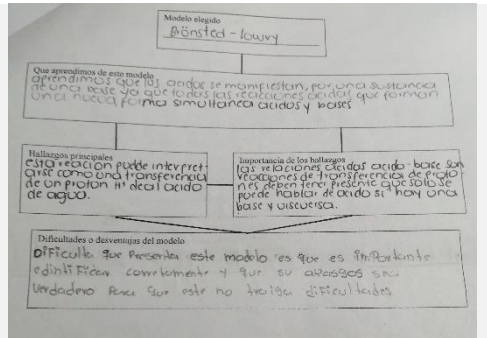 Modelo elegido
Brönsted - lowry
Que aprendimos de este modelo
aprendimos que los acidos se manifiestan, por una sustancia
de una base ya que todas las reacciones acidas que forman
una nueva forma simultanea acidos y bases
Hallazgos principales
esta reacion pudde interpret-
arse como una transferencia
de un proton H+ deal acido
de agua.
Importancia de los hallazgos
las relaciones acidas acido-base son
reacciones de transferencia de proto-
nes deben tener presente que solo se
puede hablar de acido si hay una
base y viseversa.
Dificultades o desventajas del modelo
Dificulta que presenta este modelo es que es importante
edintificar corretamente y que su sea
verdadero para que este no traiga dificultades